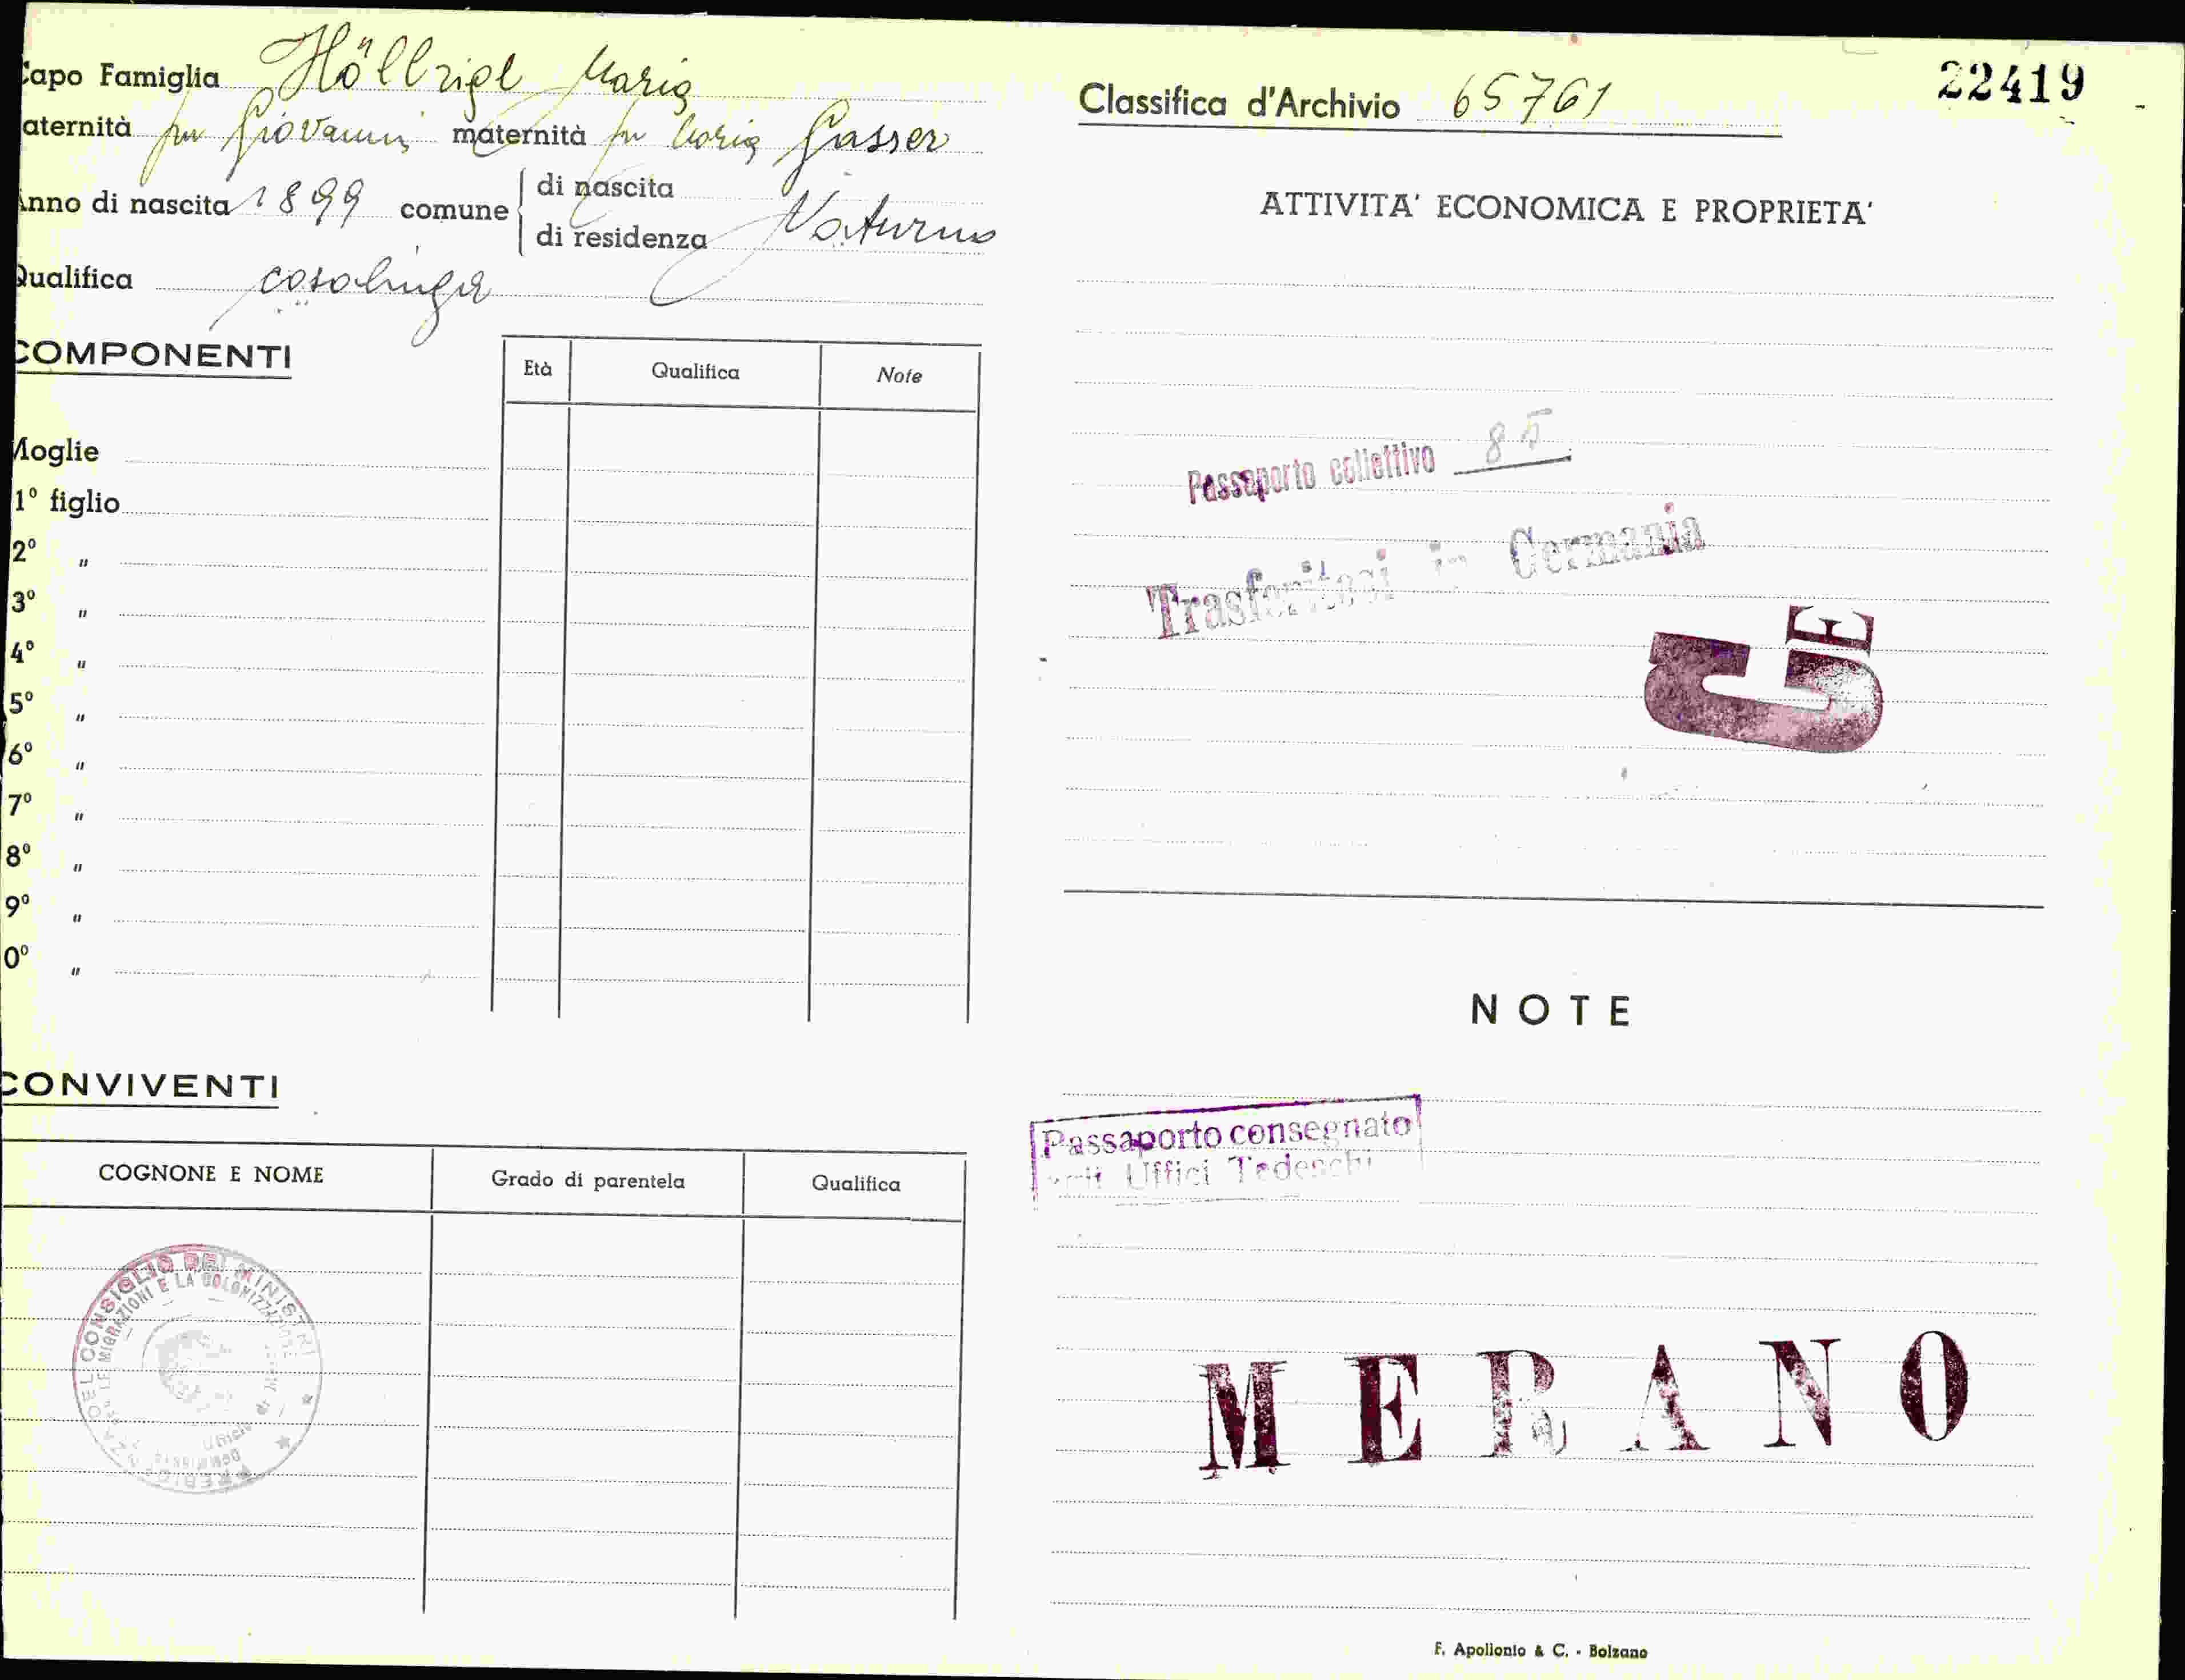 Capo Famiglia Höllrigl Maria
aternità fu Giovanni maternità fu Maria Gasser
Anno di nascita 1899 comune di nascita
di residenza Naturno
Qualifica casalinga
COMPONENTI
Età Qualifica Note
Moglie
1º figlio
2º "
3º "
4º "
5º "
6º "
7º "
8º "
9º "
0º "
CONVIVENTI
COGNONE E NOME Grado di parentela Qualifica
DEL CONSIGLIO DEI MINISTRI
MIGRAZIONI E LA COLONIZZAZIONE
Classifica d'Archivio 65761
22419
ATTIVITA' ECONOMICA E PROPRIETA'
Passaporto collettivo 85
Trasferitosi in Germania
G E
NOTE
Passaporto consegnato
Uffici Tedeschi
MERANO
F. Apollonio & C. - Bolzano